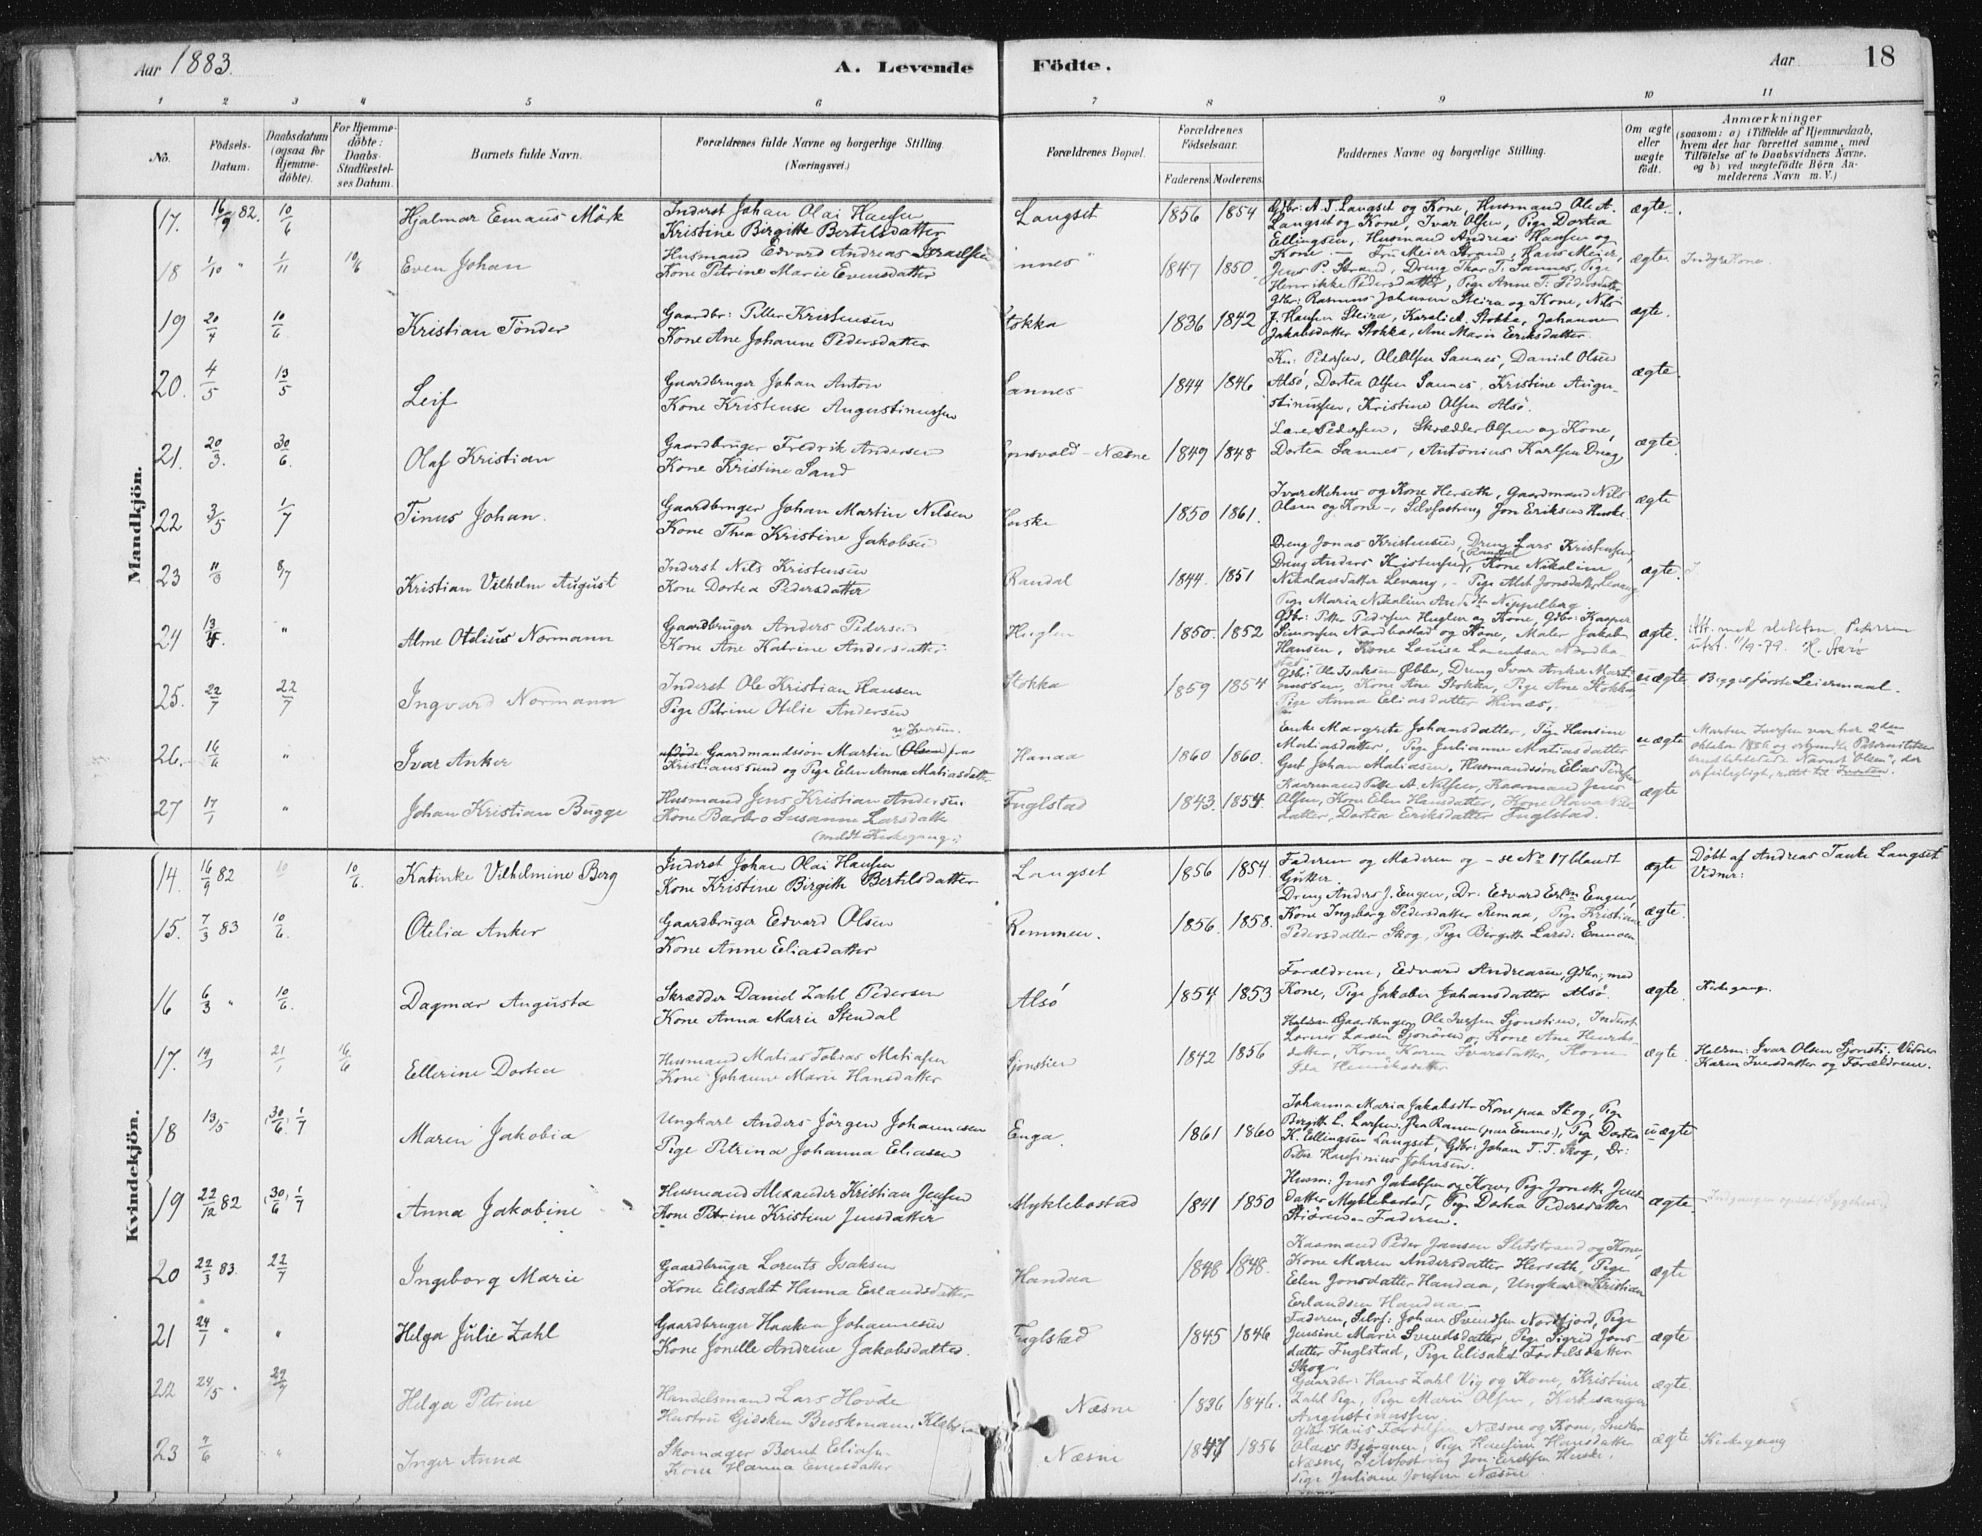 Aar 1883. A. Levende Födte. Aar 18
1 2 3 4 5 6 7 8 9 10 11
No. Födsels-Datum. Daabsdatum (ogsaa for Hjemme-döbte). For Hjemme-döbte: Daabs-Stadfæstel-ses Datum. Barnets fulde Navn. Forældrenes fulde Navne og borgerlige Stilling (Næringsvei.) Forældrenes Bopæl. Forældrenes Födselsaar. Faderens Moderens Faddernes Navne og borgerlige Stilling. Om ægte eller uægte födt. Anmærkninger (saasom: a) i Tilfælde af Hjemmedaab, hvem der har forrettet samme, med Tilföielse af to Daabsvidners Navne, og b) ved uægtefödte Börn An-melderens Navn m. V.)
Mandkjön.
17. 16/9 82. 10/6 Hjalmar Emaus Mörk Inderst Johan Olai Hansen Langset 1856 1854 Gdbr: A. T. Langset og Kone, Husmand Ole A. ægte.
Kristine Birgitte Bertilsdatter Langset og Kone, Ivar Olsen, Pige Dortea
Ellingsen, Husmand Andreas Hansen og
18 1/10 " 1/11 10/6 Even Johan Husmand Edvard Andreas Israelsen nnes 1847 1850 Kone. — Fru Meier Strand, Hans Meier, ægte. Indgk Kone.
Kone Petrine Marie Evensdatter Jens P. Strand, Dreng Thor T. Sannes, Pige
Henrikke Pedersdatter, Pige Anne T. Pedersdatter
19 20/4 10/6 Kristian Tönder Gaardbr: Petter Kristensen Stokka 1836 1842 Gdbr: Rasmus Johansen Steira og Kone, Nils ægte.
Kone Ane Johanne Pedersdatter J. Hansen Steira, Karoli A. Stokka, Johanna
Jakobsdatter Stokka, Ane Marie Eriksdatter.
20. 4/5 13/5 Leif Gaardbruger Johan Anton Sannes 1844 1846 Kn: Pedersen, Ole Olsen Sannes, Daniel Olsen ægte.
Kone Kristense Augustinussen Alsö, Dortea Olsen Sannes, Kristine Augu-
stinussen, Kristine Olsen Alsö.
21. 20/3. 30/6. Olaf Kristian Gaardbruger Fredrik Andersen 1849 1848 Lærer Pedersen, Skrædder Olsen og Kone, ægte.
Kone Kristine Sand Dortea Sannes, Antonius Karlsen Dreng
22 3/5 1/7 Tinus Johan. Gaardbruger Johan Martin Nilsen Huske 1850 1861. Ivar Mehus og Kone Herseth, Gaardmand Nils ægte
Kone Thea Kristine Jakobsen Olsen og Kone —, Selvfostring Jon Eriksen Huske.
23 11/3 8/7 Kristian Vilhelm August Inderst Nils Kristensen Randal 1844. 1851 Dreng Jonas Kristensen, Dreng Lars Kristensen, ægte.
Kone Dortea Pedersdatter Dreng Anders Kristensen, Randal, Kone Nikoline
Nikolaisdatter Levang, — Pige Alet Jonsdatter Levang
Pige Maria Nikoline Andr.dtr Neppelberg.
24 13/4. " Alme Otelius Normann Gaardbruger Anders Pedersen Huglen 1850. 1852 Gdbr: Petter Pedersen Huglen og Kone, Gdbr: Kasper ægte.
Kone Ane Katrine Andersdatter Simonsen Nordbostad og Kone, Maler Jakob
Hansen, Kone Louisa Lorentsen Nordbo-
stad.
25. 22/7 22/7 Ingvard Normann Inderst Ole Kristian Hansen Stokka 1859 1854 Gdbr: Ole Isaksen Öbbe, Dreng Ivar Anker Marti- uægte. Begges förste Leiermaal.
Pige Petrine Otelie Andersen nussen, Kone Ane Stokka, Pige Ane Stokka
Pige Anna Eliasdatter Hinæs.
26. 16/6 " Ivar Anker Gaardmandssön Martin (Olsen) Ivertsen fra Hanaa 1860 1860. Enke Margrete Johansdatter, Pige Hansine uægte
Kristianssund og Pige Elen Anna Matiasdatter Matiasdatter, Pige Julianne Matiasdatter
Gut Johan Matiasen, Husmandssön Elias Peders
27 17/1 " Johan Kristian Bugge Husmand Jens Kristian Andersen Fuglstad 1843. 1854. Kaarmand Petter A. Nilsen, Kaarmand Jens ægte
Kone Barbro Susanne Larsdatter Olsen, Kone Elen Hansdatter, Kone Olava Nils-
(meldt Kirkegang.) datter, Dortea Eriksdatter Fuglstad.
Kvindekjön.
14. 16/9 82 10 10/6. Katinke Vilhelmine Berg Inderst Johan Olai Hansen Langset 1856 1854. Faderen og Moderen og — se No 17 blandt ægte Döbt af Andreas Tanke Langset
Kone Kristine Birgitte Bertilsdatter Gutter. Vidner:
15. 7/3 83 10/6. Otelia Anker Gaardbruger Edvard Olsen Remmen. 1856. 1858. Dreng Anders J. Engen, Dr. Edvard Erlsn Engen, ægte.
Kone Anne Eliasdatter Kone Ingeborg Pedersdatter Remaa, Pige Kristiane
Pedersdatter Skog, Pige Birgitte Larsd: Enmoen
16 6/3 " 10/6. Dagmar Augusta Skrædder Daniel Zahl Pedersen Alsö 1854 1853 Forældrene, Edvard Andreasen, Gdbr. med ægte. Kirkegang.
Kone Anna Marie Stendal Kone, Pige Jakobea Johansdatter Alsö.
17. 19/1 21/1 16/6 Ellerine Dortea Husmand Matias Tobias Matiasen Sjonstien 1842 1856 Gaardbruger Ole Iversen Sjonstien, Inderst ægte. Halsm: Ivar Olsen Sjonsti. Vidner
Kone Johanne Marie Hansdatter Lorns Larsen Sjonören, Kone Ane Henriks- Karen Iversdatter og Forældrene.
datter, Kone Karen Ivarsdatter, Kone
Ida Henriksdatter
18 13/5 (30/6) 1/7 Maren Jakobia Ungkarl Anders Jörgen Johannesen Enga. 1861 1860 Johanna Maria Jakobsdtr Kone paa Skog, Pige uægte
Pige Petrina Johanna Eliasen Birgitte L. Larsen, fra Ranen (paa Enmo.), Pige Dortea
K. Ellingsen Langset, Gdbr: Johan T. T. Skog, Dr:
Peter Hansinius Johnsen.
19 22/12 82 (30/6) 1/7 Anna Jakobine Husmand Alexander Kristian Jensen Myklebostad 1841 1850 Husm: Jens Jakobsen og Kone, Pige Jonette Jens- ægte.
Kone Petrine Kristine Jensdatter datter Myklebostad, Pige Dortea Pedersdatter
Stiören — Faderen.
20 22/3 83. 22/7 Ingeborg Marie Gaardbruger Lorents Isaksen Handaa 1848 1848. Kaarmand Peder Jansen Sletstrand og Kone, ægte
Kone Elisabet Hanna Erlandsdatter Kone Maren Andersdatter Herseth, Pige
Elen Jonsdatter Handaa, Ungkar Kristian
Erlandsen Handaa —
21 24/1 " " Helga Julie Zahl Gaardbruger Haaken Johannesen Fuglstad 1845 1846 Faderen, Selvf: Johan Svendsen Nordfjord, Pige ægte
Kone Jonelle Andrine Jakobsdatter. Jensine Marie Svendsdatter, Pige Sigrid Jons-
datter Fuglstad, Pige Elisabet Tortilsdatter
Skog.
22 24/5 " 29/7 Helga Petrine Handelsmand Lars Hovde Næsne 1836 1846. Gaardbr: Hans Zahl Vig og Kone, Kristine ægte.
Hustru Gidsken Buskmann Zahl Pige, Pige Marie Olsen, Kirkesanger
Augustinussen,
23 7/6 " Inger Anna Skomager Bernt Eliasen Næsne 1847 1856 Gdbr Hans Tortilsen Næsne og Kone, Snedker ægte Kirkegang
Kone Hanna Evensdatter Olaus Björgnen, Pige Hansine Hansdatter
Næsne, Selvfostring Jon Eriksen Huske.
Pige Juliane Josefsen Næsne